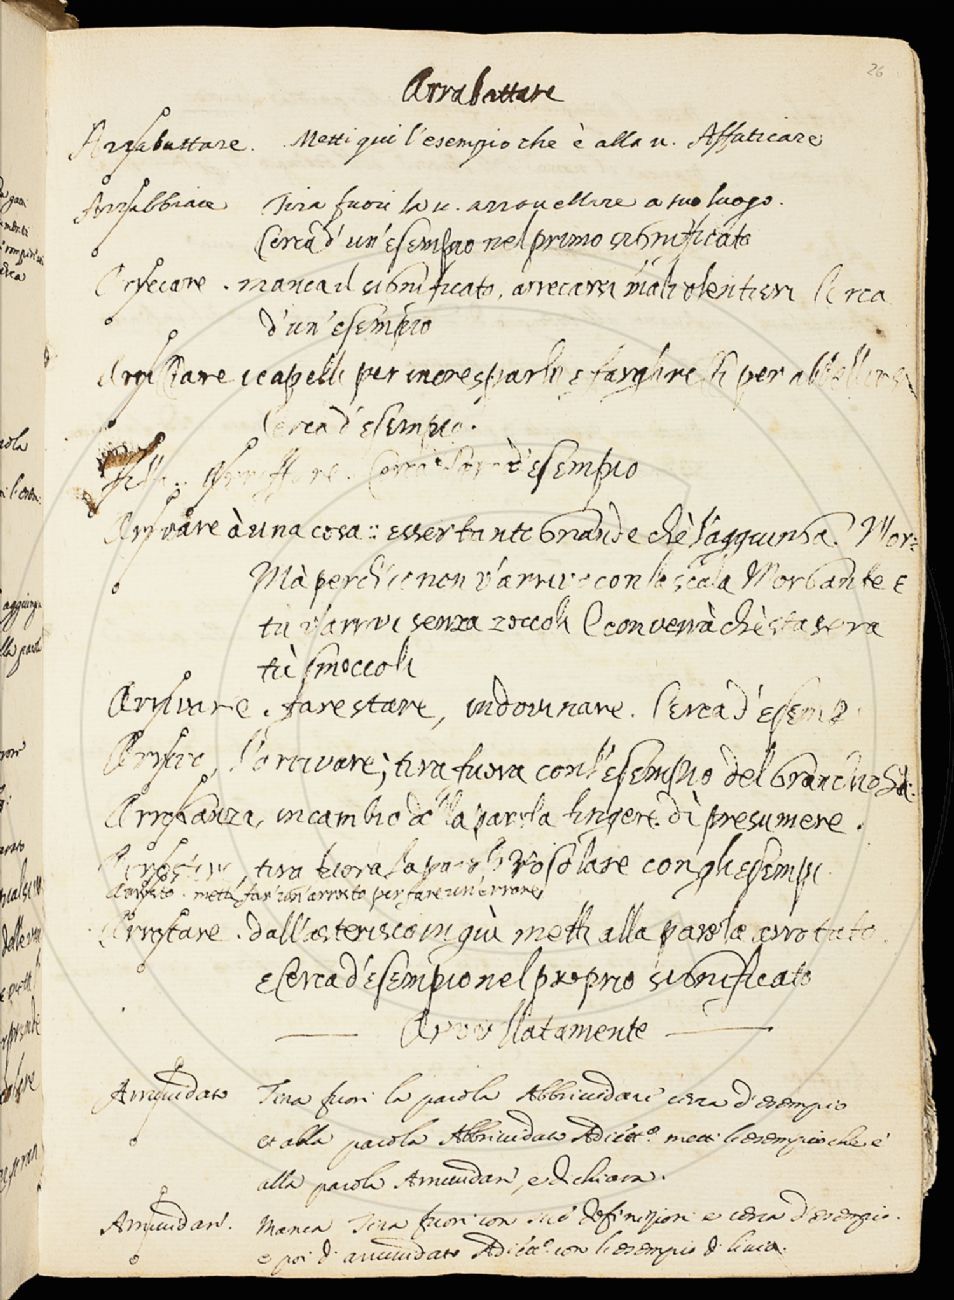 26
Arrabattare
Arrabattare. Metti qui l'esempio che è alla v. Affaticare
Arrabbiare Tira fuori la v. arrovellare a suo luogo.
Cerca d'un'esempio nel primo significato
Arrecare. manca il significato, arrecarsi mal volentieri Cerca
d'un'esempio
Arricciare i capelli per increspargli e fargli ricci per abbellirsi
Cerca d'esempio.
Cerca d'esempio
Arrivare à una cosa :: esser tanto grande che s'aggiunga. Mor=
Mà perch'io non v'arrivo con la scala Morgante e
tù v'arrivi senza zoccoli E converrà chè stasera
tù smoccoli
Arrivare. fare stare, indovinare. Cerca d'esemp
Arrivo, l'arrivare; tira fuora con l'esempio del
Arroganza, in cambio della parola fingere dì presumere.
tira fuora la parola rosolare con gli esempi
Arrosto. metti far con arrosto per fare un errore
Arrotare. dall'asterisco in giù metti alla parola arrotato.
e Cerca d'esempio nel proprio significato
Arrovellatamente
Arruvidato Tira fuori la parola Abbruvidare cerca d'esempio
et alla parola Abbruvidato Adiett.o metti l'esempio che è
alla parola Arruvidare, e dichiara.
Arruvidare. Manca Tira fuori con sue definizioni e cerca d'esempio.
e poi d'arruvidato Adiett.o con l'esempio di Livio.